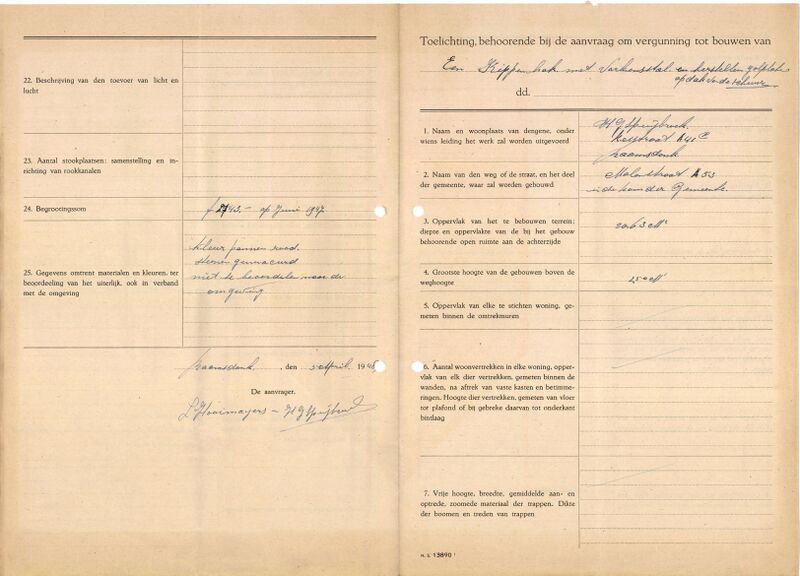 22. Beschrijving van den toevoer van licht en
lucht
23. Aantal stookplaatsen: samenstelling en in-
richting van rookkanalen
24. Begrootingssom
op Juni 1947
25. Gegevens omtrent materialen en kleuren, ter
beoordeeling van het uiterlijk, ook in verband
met de omgeving
kleur pannen rood.
niet te beoordelen naar de
omgeving
Raamsdonk, den 5 April 1948
De aanvrager,
L Hooimayers – H G Spuijbroek
Toelichting, behoorende bij de aanvraag om vergunning tot bouwen van
Een Kippenhok met Varkensstal en herstellen golfplaten
op dak v. de schuur
dd.
1. Naam en woonplaats van dengene, onder
wiens leiding het werk zal worden uitgevoerd
H G Spuijbroek.
Raamsdonk
2. Naam van den weg of de straat, en het deel
der gemeente, waar zal worden gebouwd
Molenstraat A 53
in de kom der Gemeente.
3. Oppervlak van het te bebouwen terrein;
diepte en oppervlakte van de bij het gebouw
behoorende open ruimte aan de achterzijde
4. Grootste hoogte van de gebouwen boven de
weghoogte
5. Oppervlak van elke te stichten woning, ge-
meten binnen de omtrekmuren
6. Aantal woonvertrekken in elke woning, opper-
vlak van elk dier vertrekken, gemeten binnen de
wanden, na aftrek van vaste kasten en betimme-
ringen. Hoogte dier vertrekken, gemeten van vloer
tot plafond of bij gebreke daarvan tot onderkant
bintlaag
7. Vrije hoogte, breedte, gemiddelde aan- en
optrede, zoomede materiaal der trappen. Dikte
der boomen en treden van trappen
N. S. 13890